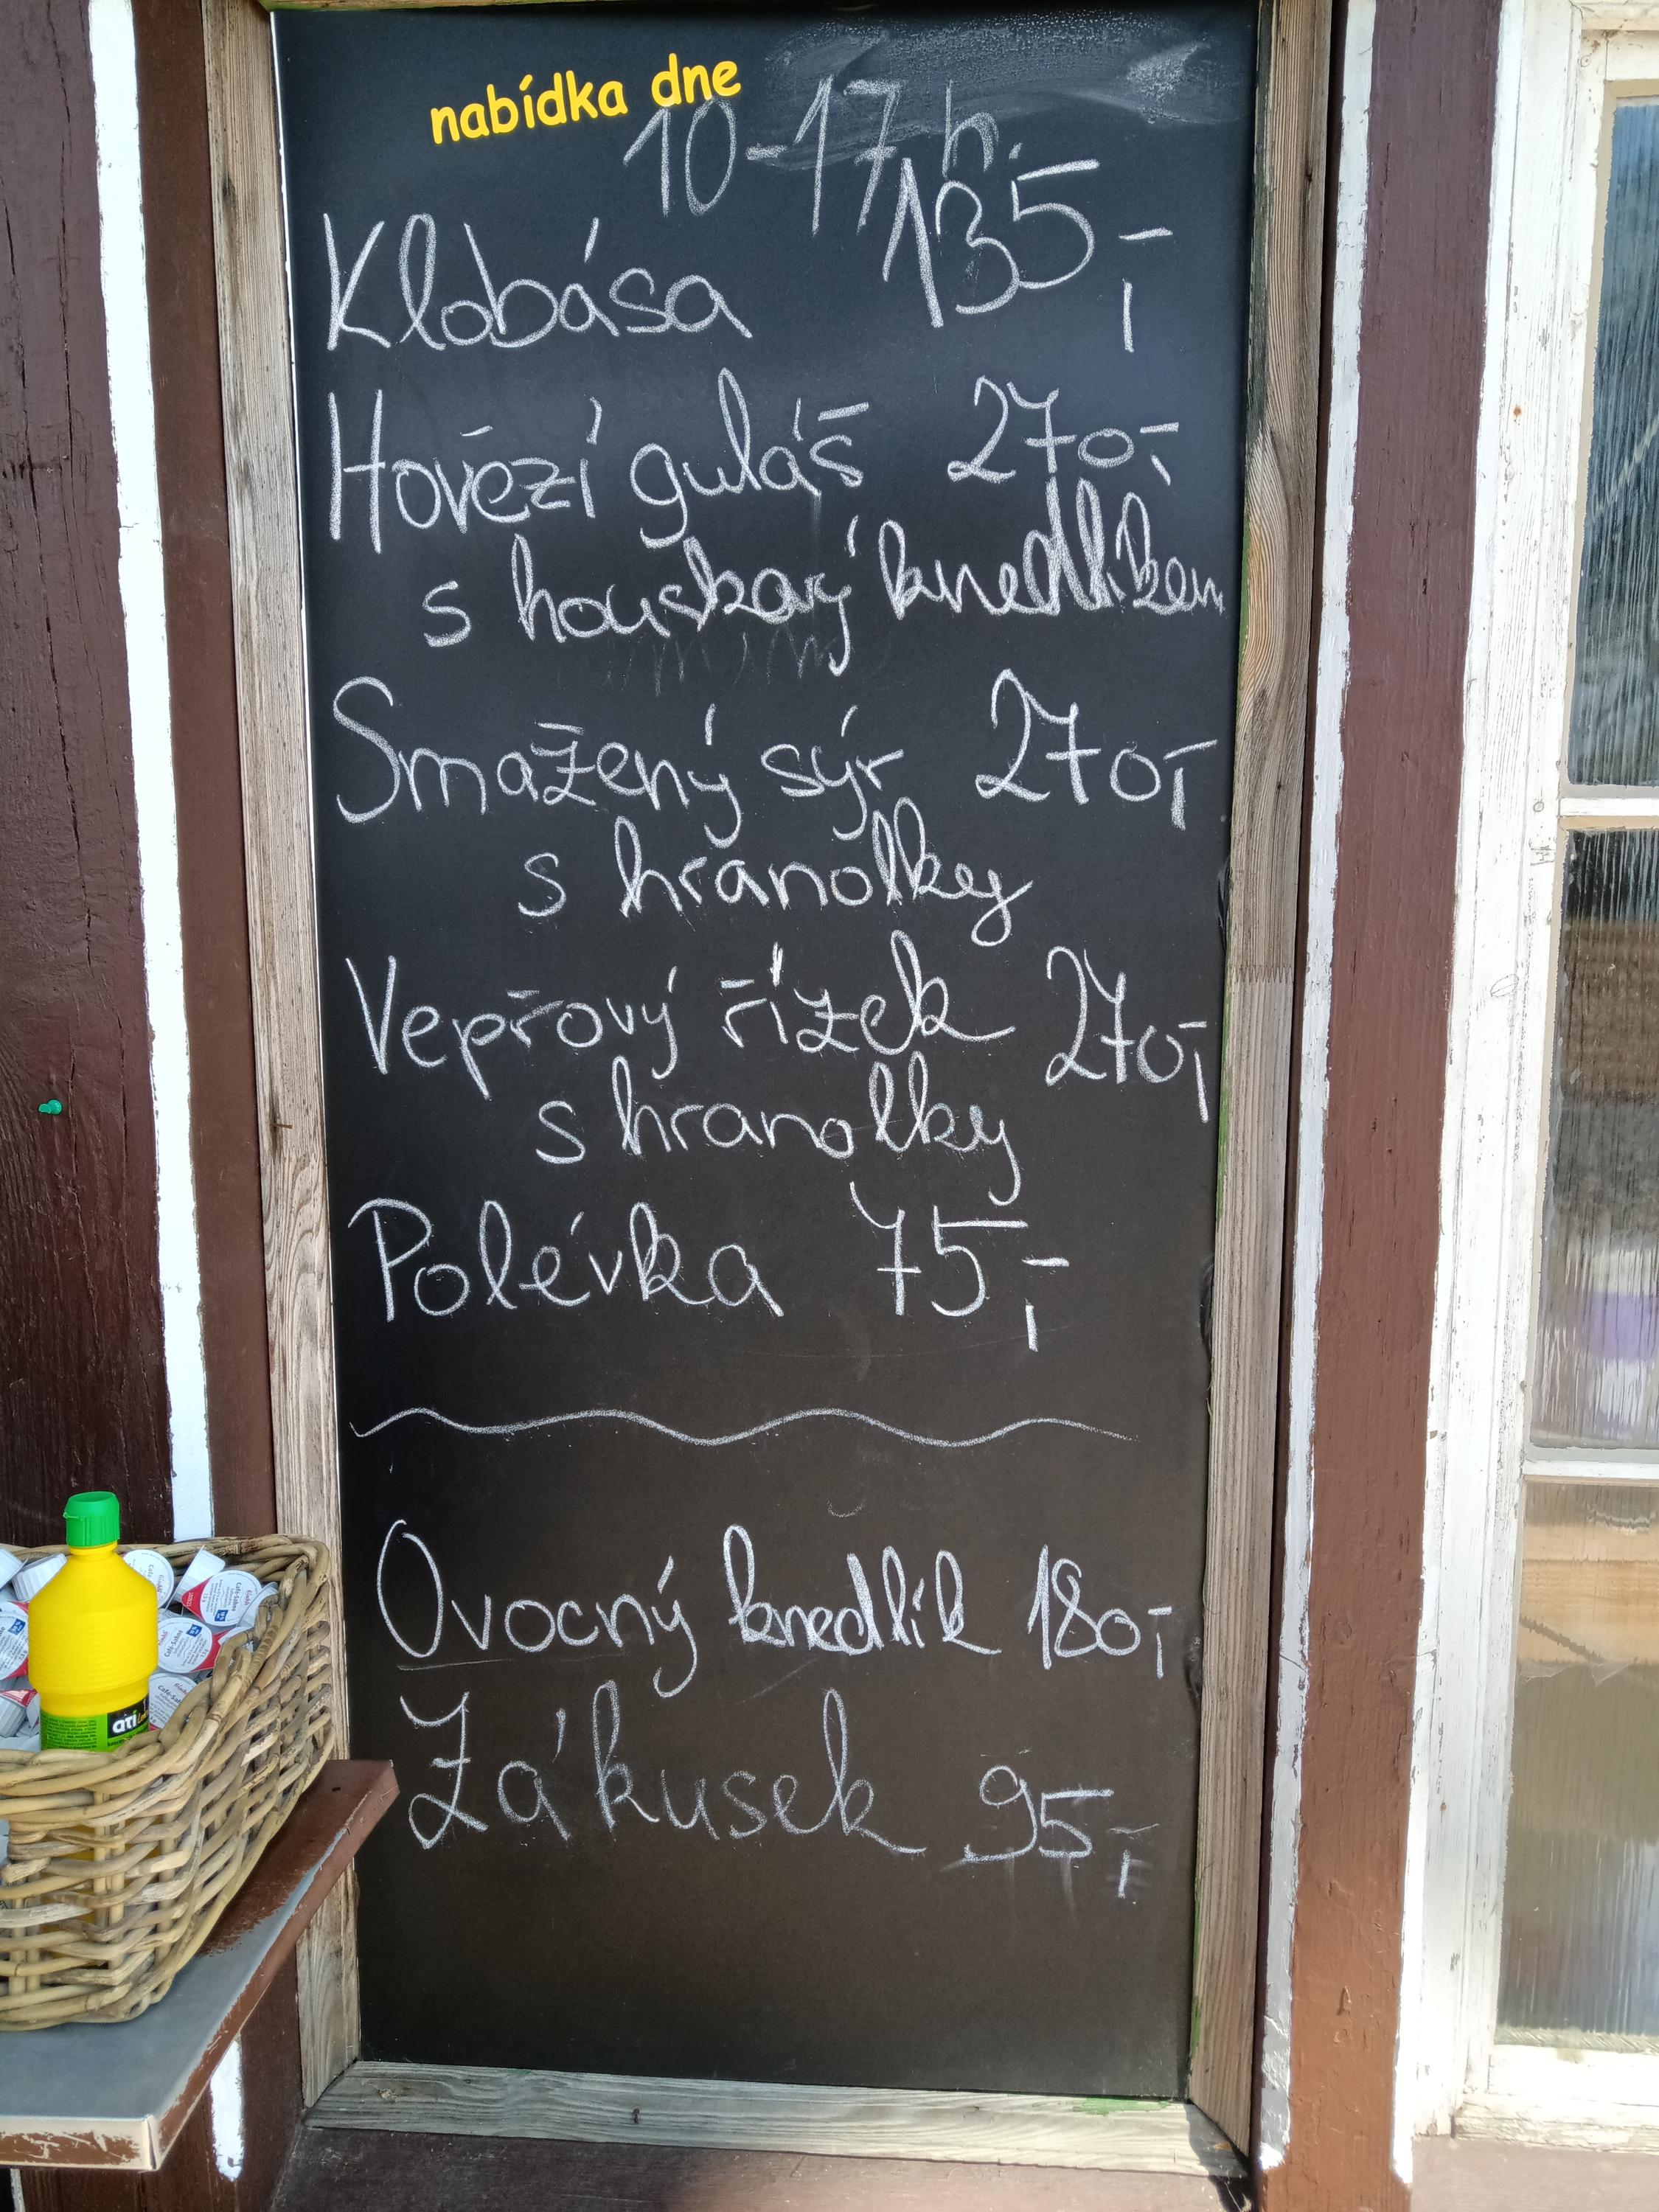 nabídka dne
10-17 h.
Klobása 135,-
Hovězí guláš 270,-
s houskový knedlíkem
Smažený sýr 270,-
s hranolky
Vepřový řízek 270,-
s hranolky
Polévka 75,-
Ovocný knedlík 180,-
Zákusek 95,-
ati